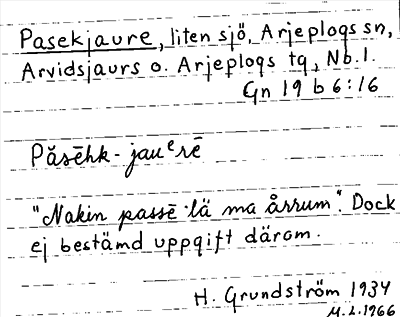 Pasekjaure, liten sjö, Arjeplogs sn,
Arvidsjaurs o. Arjeplogs tg, Nb. l.
Gn 19 b 6:16
Påsēhk-jauᵉrē
"Nakin passē lä ma årrum". Dock
ej bestämd uppgift därom.
H. Grundström 1934
M.L. 1966